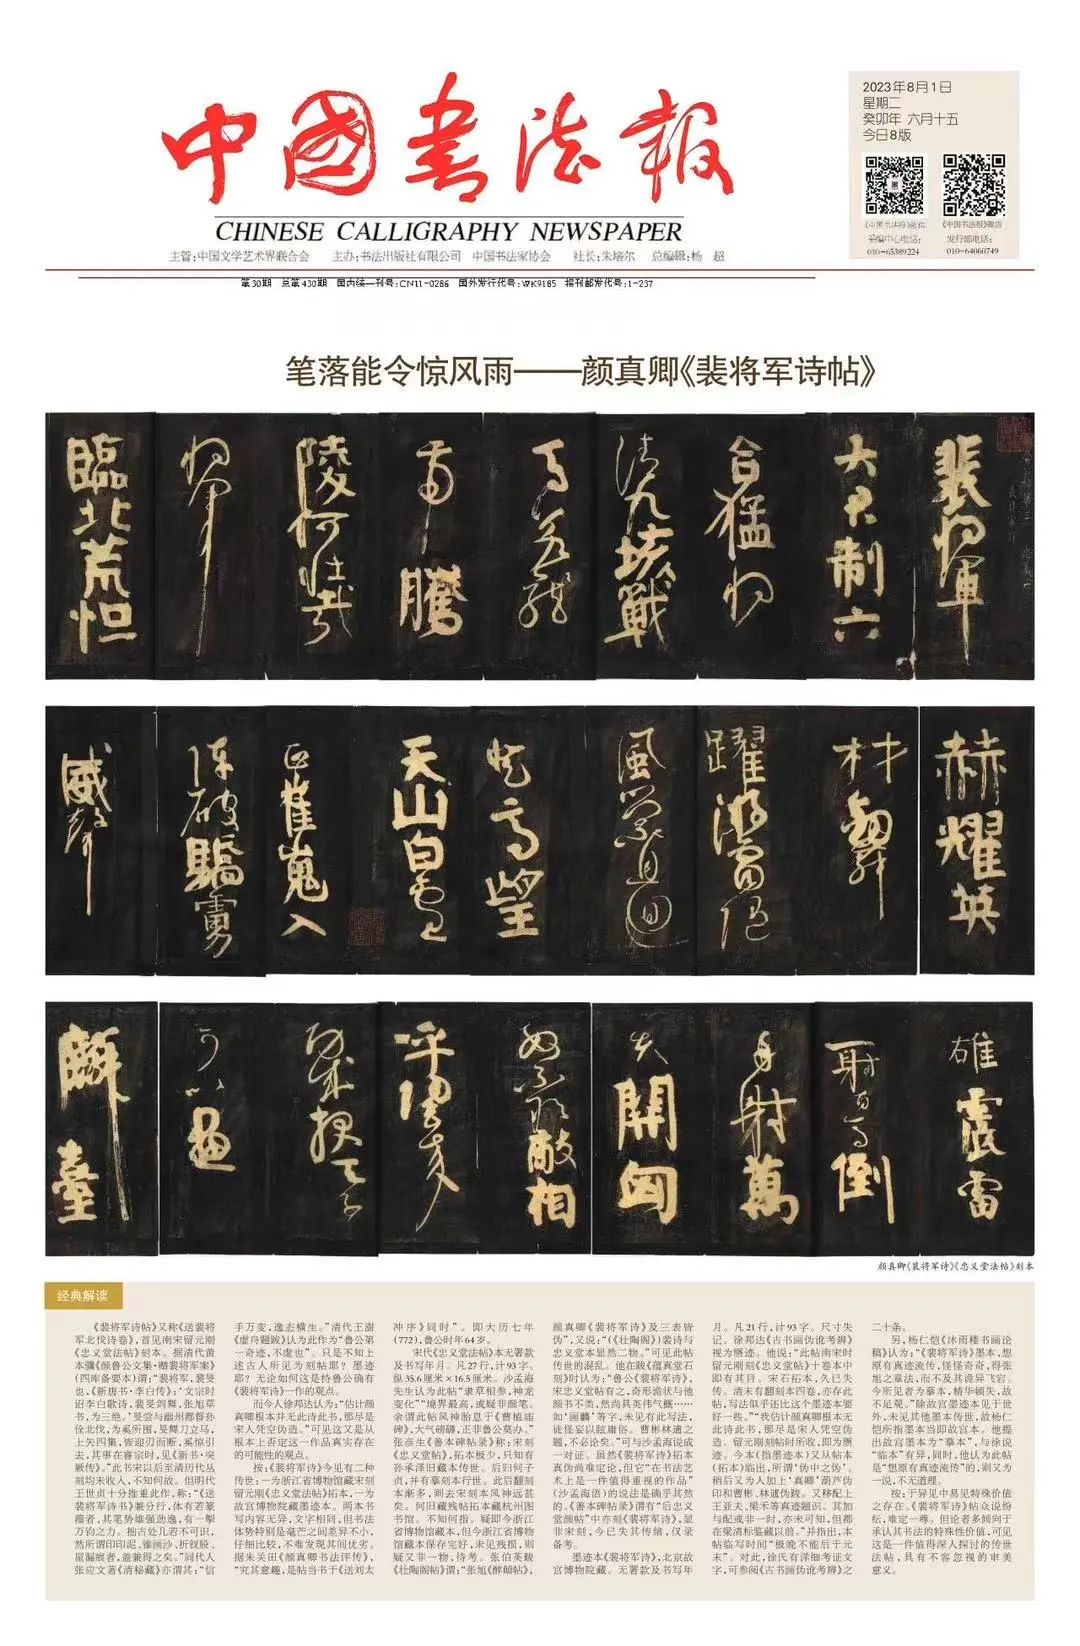 中國书法报
CHINESE CALLIGRAPHY NEWSPAPER
主管:中国文学艺术界联合会 主办:书法出版社有限公司 中国书法家协会 社长:朱培尔 总编辑:杨 超
第30期 总第430期 国内统一刊号:CN11-0286 国外发行代号:WK9185 报刊邮发代号:1-237
2023年8月1日
星期二
癸卯年 六月十五
今日8版
采编中心电话:
010-65389224
《中国书法报》微店
发行部电话:
010-64060749
笔落能令惊风雨——颜真卿《裴将军诗帖》
裴将軍
大君制六
合猛将
清九垓戰
马若龙
虎騰
陵何壮哉
将军
臨北荒恒
赫耀英
材劍舞
躍游電随
風萦且回
登高望
天山白雲
正崔嵬入
陣破驕虜
威聲
雄震雷
一射百马倒
再射萬
夫開匈
奴不敢相
呼归来
功成报天子
可以画
麟臺
颜真卿《裴将军诗》《忠义堂法帖》刻本
经典解读
《裴将军诗帖》又称《送裴将
军北伐诗卷》,首见南宋留元刚
《忠义堂法帖》刻本。据清代黄
本骥《颜鲁公文集·楷裴将军案》
(四库备要本)谓:“裴将军,裴旻
也,《新唐书·李白传》:‘文宗时
诏李白歌诗,裴旻剑舞,张旭草
书,为三绝。’旻尝与幽州都督孙
佺北伐,为奚所围,旻舞刀立马,
上矢四集,皆迎刃而断,奚惊引
去,其事在睿宗时,见《新书·突
厥传》。”此书宋以后至清历代丛
刻均未收入,不知何故。但明代
王世贞十分推重此作,称:“《送
裴将军诗书》兼分行,体有若篆
籀者,其笔势雄强劲逸,有一掣
万钧之力。拙古处几若不可识,
然所谓印印泥、锥画沙、折钗股、
屋漏痕者,盖兼得之矣。”同代人
张应文著《清秘藏》亦谓其:“信
手万变,逸态横生。”清代王澍
《虚舟题跋》认为此作为“鲁公第
一奇迹,不虚也”。只是不知上
述古人所见为刻帖耶?墨迹
耶?无论如何这是持鲁公确有
《裴将军诗》一作的观点。
而今人徐邦达认为:“估计颜
真卿根本并无此诗此书,那尽是
宋人凭空伪造。”可见这又是从
根本上否定这一作品真实存在
的可能性的观点。
按:《裴将军诗》今见有二种
传世:一为浙江省博物馆藏宋刻
留元刚《忠义堂法帖》拓本,一为
故宫博物院藏墨迹本。两本书
写内容无异,文字相同,但书法
体势特别是毫芒之间差异不小,
仔细比较,不难发现其间优劣。
据朱关田《颜真卿书法评传》,
“究其意趣,是帖当书于《送刘太
冲序》同时”。即大历七年
(772),鲁公时年64岁。
宋代《忠义堂法帖》本无署款
及书写年月。凡27行,计93字。
纵35.6厘米×16.5厘米。沙孟海
先生认为此帖“隶草相参,神龙
变化”“境界最高,或疑非颜笔。
余谓此帖风神胎息于《曹植庙
碑》,大气磅礴,正非鲁公莫办。”
张彦生《善本碑帖录》称:宋刻
《忠义堂帖》,拓本极少,只知有
孙承泽旧藏本传世。后归何子
贞,并有摹刻本行世。此后翻刻
本渐多,则去宋刻本风神远甚
矣。何旧藏残帖拓本藏杭州图
书馆。不知何指。疑即今浙江
省博物馆藏本,但今浙江省博物
馆藏本保存完好,未见残损,则
疑又非一物,待考。张伯英跋
《壮陶阁帖》谓:“张旭《醉颠帖》,
颜真卿《裴将军诗》及三表皆
伪”,又说:“(《壮陶阁》)裴诗与
忠义堂本显然二物。”可见此帖
传世的混乱。他在跋《蕴真堂石
刻》时认为:“鲁公《裴将军诗》,
宋忠义堂帖有之,奇形诡状与他
颜书不类,然尚具英伟气概……
如‘画麟’等字,未见有此写法,
徒怪妄以眩庸俗。曹彬林逋之
题,不必论矣。”可与沙孟海说成
一对证。虽然《裴将军诗》拓本
真伪尚难定论,但它“在书法艺
术上是一件值得重视的作品”
(沙孟海语)的说法是确乎其然
的。《善本碑帖录》谓有“后忠义
堂颜帖”中亦刻《裴将军诗》,显
非宋刻,今已失其传绪,仅录
备考。
墨迹本《裴将军诗》,北京故
宫博物院藏。无署款及书写年
月。凡21行,计93字。尺寸失
记。徐邦达《古书画伪讹考辨》
视为赝迹。他说:“此帖南宋时
留元刚刻《忠义堂帖》十卷本中
即有其目。宋石拓本,久已失
传。清末有翻刻本四卷,亦存此
帖,写法似乎还比这个墨迹本要
好一些。”“我估计颜真卿根本无
此诗此书,那尽是宋人凭空伪
造。留元刚刻帖时所收,即为赝
迹。今本(指墨迹本)又从帖本
(拓本)临出,所谓‘伪中之伪’。
稍后又为人加上‘真卿’葫芦伪
印和曹彬、林逋伪跋。又移配上
王亚夫、梁禾等真迹题识。其加
与配或非一时,亦未可知,但都
在梁清标鉴藏以前。”并指出,本
帖临写时间“极晚不能后于元
末”。对此,徐氏有详细考证文
字,可参阅《古书画伪讹考辨》之
二十条。
另,杨仁恺《沐雨楼书画论
稿》认为:“《裴将军诗》墨本,想
原有真迹流传,怪怪奇奇,得张
旭之章法,而不及其诡异飞宕。
今所见者为摹本,精华顿失,故
不足观。”除故宫墨迹本见于世
外,未见其他墨本传世,故杨仁
恺所指墨本当即故宫本。他提
出故宫墨本为“摹本”,与徐说
“临本”有异,同时,他认为此帖
是“想原有真迹流传”的,则又为
一说,不无道理。
按:于异见中易见特殊价值
之存在。《裴将军诗》帖众说纷
纭,难定一尊。但论者多倾向于
承认其书法的特殊性价值,可见
这是一件值得深入探讨的传世
法帖,具有不容忽视的审美
意义。